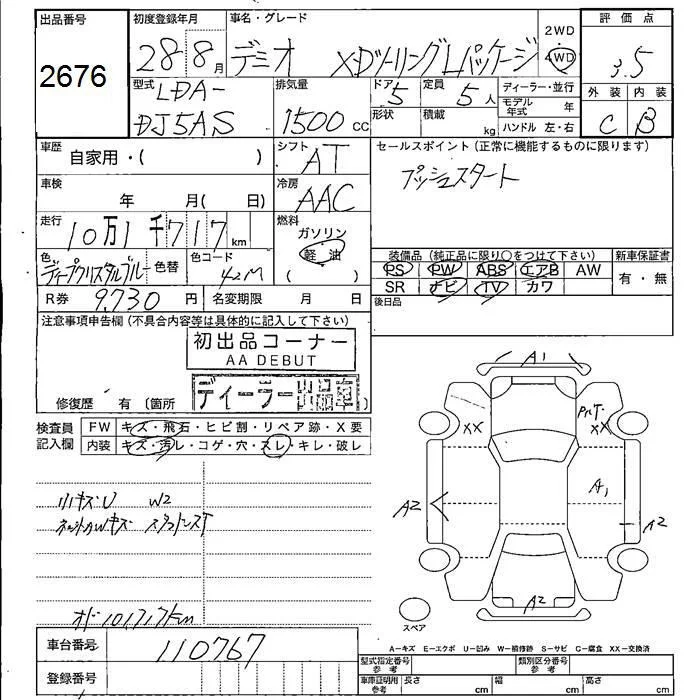 出品番号
2676
初度登録年月
28 8月
車名・グレード
デミオ XDツーリングLパッケージ
2WD
4WD
評価点
3.5
外装 内装
C B
型式
LDA-
DJ5AS
排気量
1500 cc
ドア 5
定員 5人
形状
積載 kg
ディーラー・並行
モデル年式 年
ハンドル 左・右
車歴
自家用・( )
シフト
AT
セールスポイント(正常に機能するものに限ります)
プッシュスタート
車検
年 月( 日)
冷房
AAC
走行
10万1千717km
燃料
ガソリン
軽油
( )
色
ディープクリスタルブルー
色替
色コード
42M
装備品(純正品に限り○をつけて下さい)
PS PW ABS エアB AW
SR ナビ TV カワ
新車保証書
有・無
R券 9,730 円
名変期限 月 日
後日品
注意事項申告欄(不具合内容等は具体的に記入して下さい)
初出品コーナー
AA DEBUT
ディーラー出品車
修復歴 有(箇所 )
検査員記入欄
FW キズ・飛石・ヒビ割・リペア跡・X要
内装 キズ・汚レ・コゲ・穴・スレ・キレ・破レ
W2
オド101,717km
A1
XX
XX
A1
A2
A2
A2
スペア
車台番号
110767
登録番号
A－キズ E－エクボ U－凹み W－補修跡 S－サビ C－腐食 XX－交換済
型式指定番号
参考
類別区分番号
参考
車庫証明用
参考
長さ cm
幅 cm
高さ cm